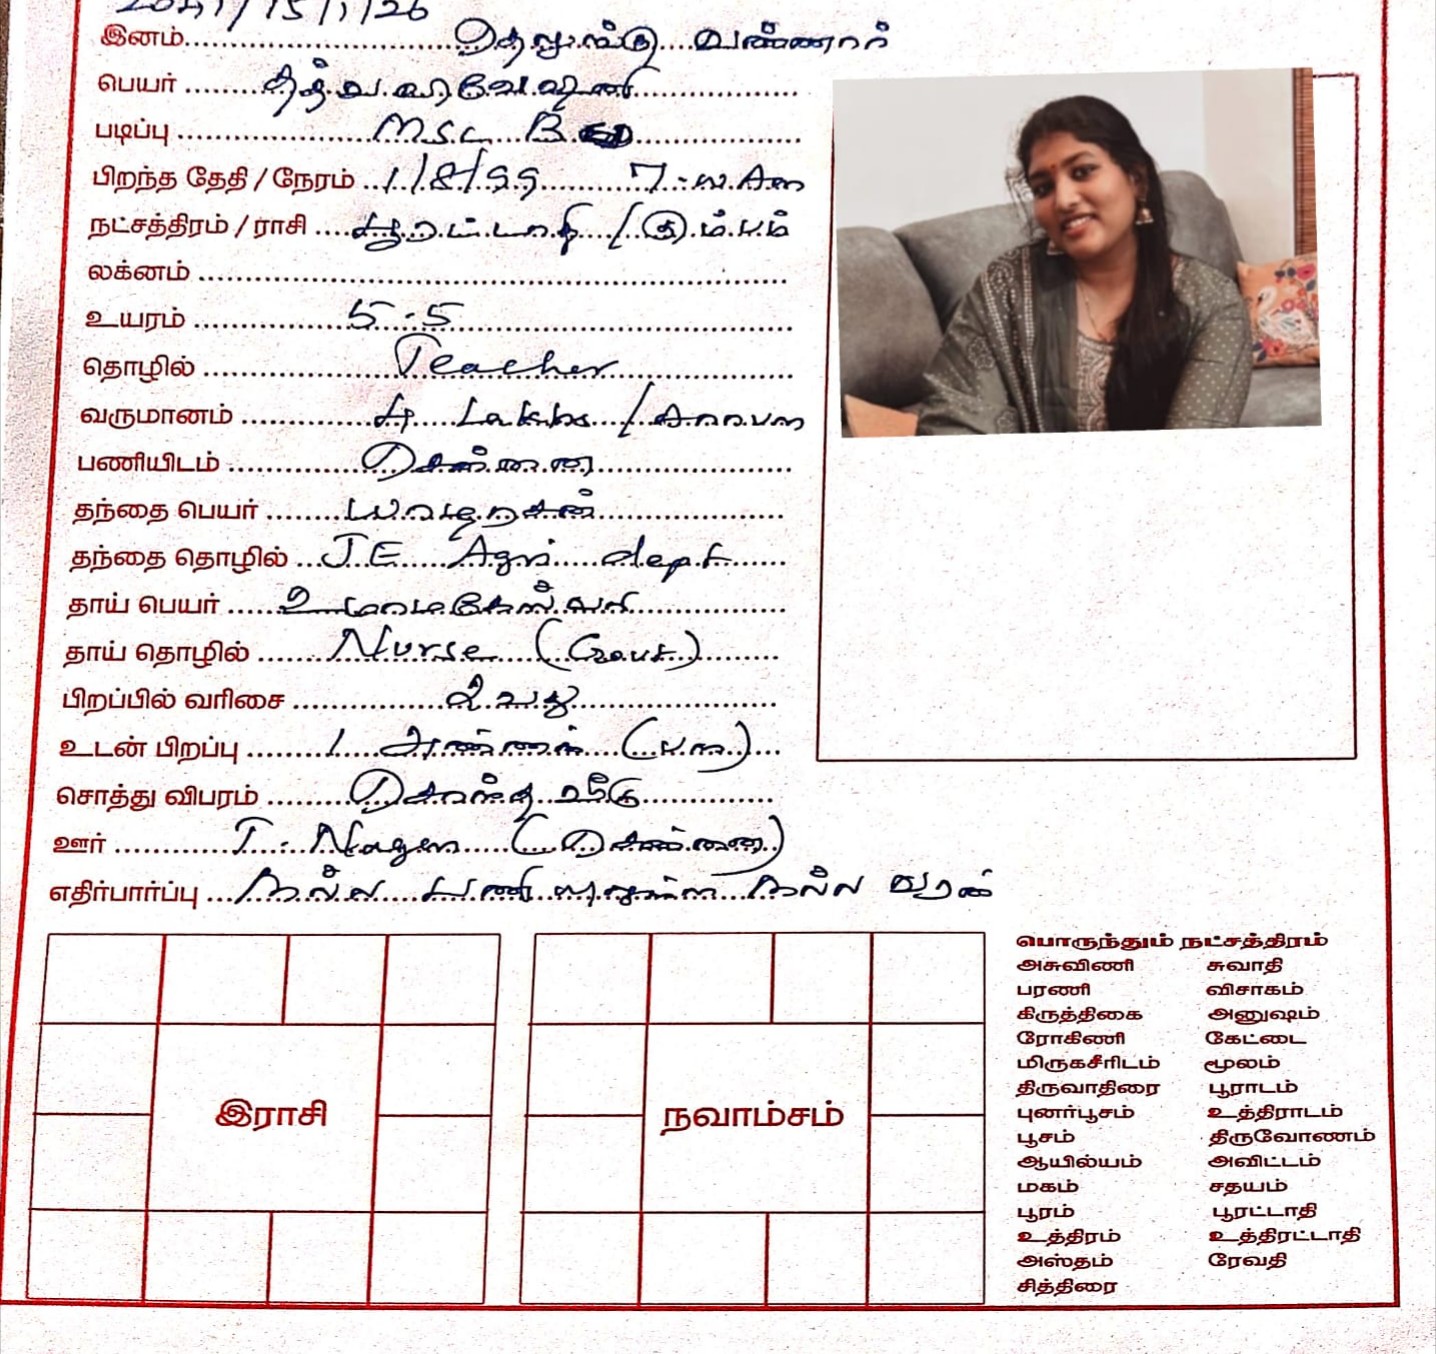 /15/1/26
இனம் தெலுங்கு வண்ணார்
பெயர்
படிப்பு MSc B
பிறந்த தேதி / நேரம் 1/8/99 7-
நட்சத்திரம் / ராசி பூரட்டாதி / கும்பம்
லக்னம்
உயரம் 5-5
தொழில் Teacher
வருமானம் 4 Lakhs /
பணியிடம் சென்னை
தந்தை பெயர்
தந்தை தொழில் J.E Agri dept
தாய் பெயர் உமாமகேஸ்வரி
தாய் தொழில் Nurse (Govt)
பிறப்பில் வரிசை 2 வது
உடன் பிறப்பு 1 அண்ணன்
சொத்து விபரம் சொந்த வீடு
ஊர் T. Nagar (சென்னை)
எதிர்பார்ப்பு நல்ல பணியிலுள்ள நல்ல வரன்
இராசி
நவாம்சம்
பொருந்தும் நட்சத்திரம்
அசுவிணி சுவாதி
பரணி விசாகம்
கிருத்திகை அனுஷம்
ரோகிணி கேட்டை
மிருகசீரிடம் மூலம்
திருவாதிரை பூராடம்
புனர்பூசம் உத்திராடம்
பூசம் திருவோணம்
ஆயில்யம் அவிட்டம்
மகம் சதயம்
பூரம் பூரட்டாதி
உத்திரம் உத்திரட்டாதி
அஸ்தம் ரேவதி
சித்திரை